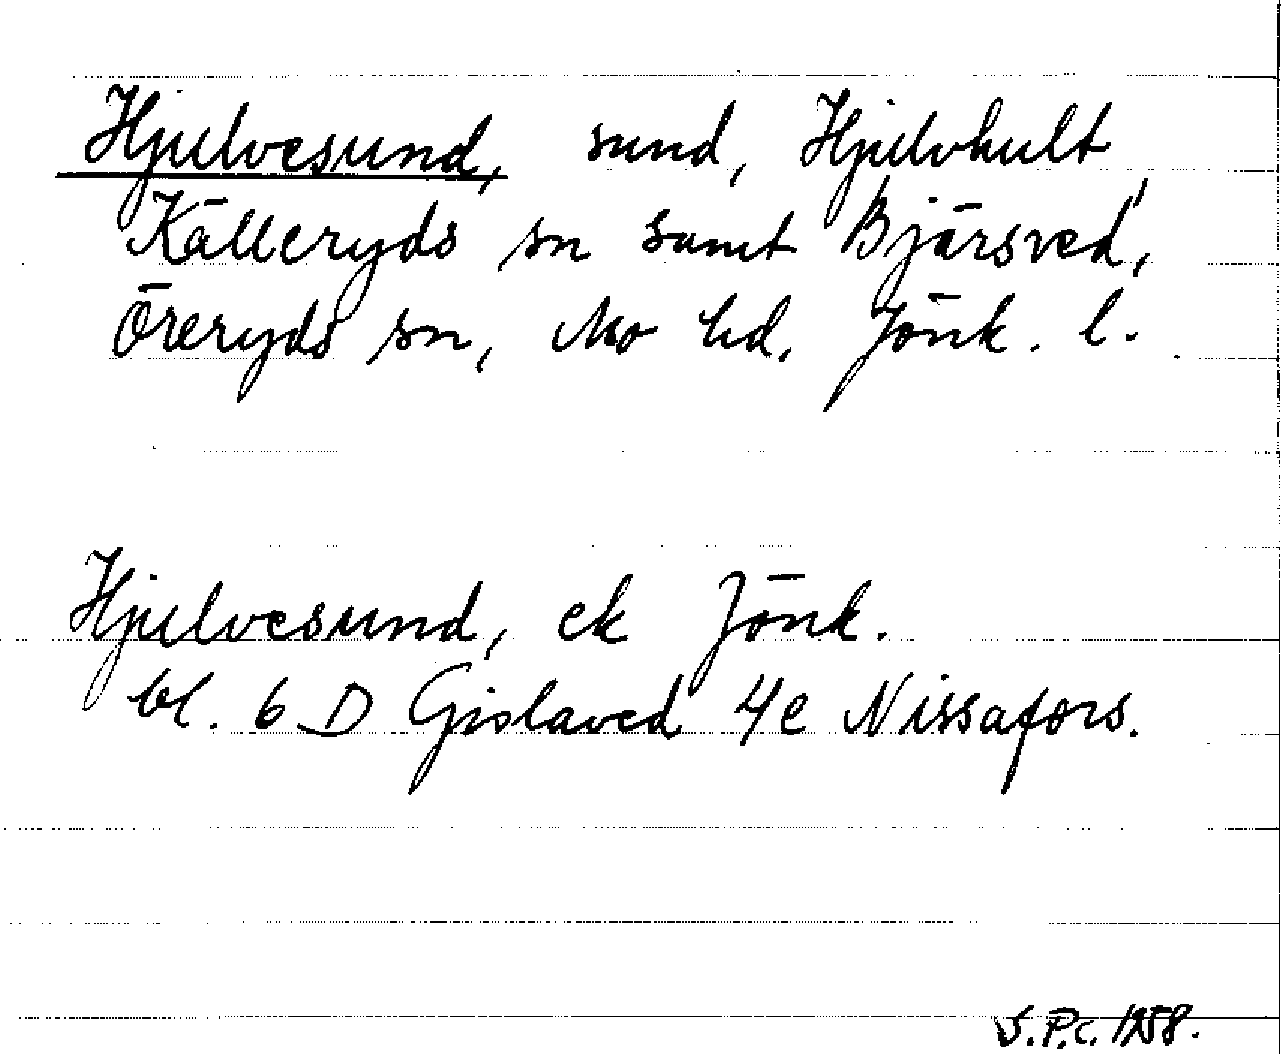 Hjulvesund, sund, Hjulvhult,
Källeryds sn samt Bjärsved,
Öreryds sn, Mo hd, Jönk. l.
Hjulvesund, ek Jönk.
bl. 6 D Gislaved 4e Nissafors.
S.P.c. 1958.